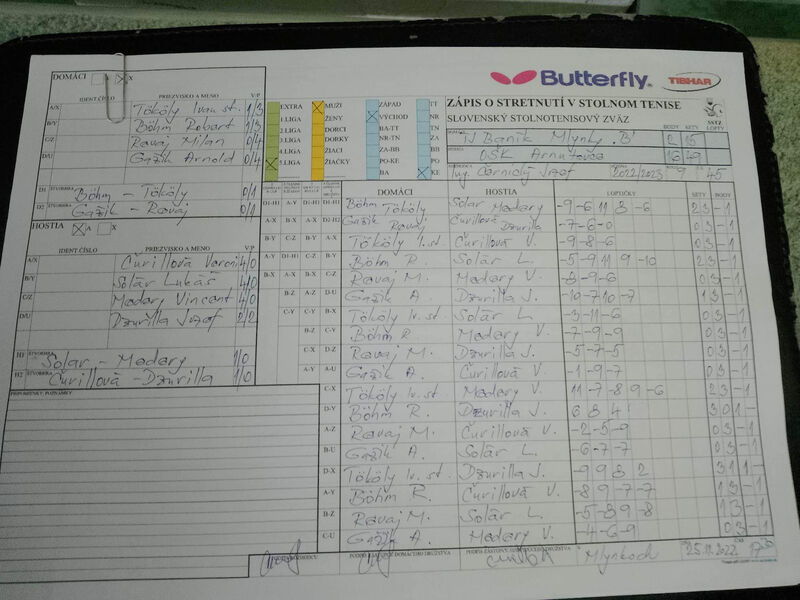 DOMÁCI X
Butterfly. TIBHAR
IDENT.ČÍSLO PRIEZVISKO A MENO V/P
A/X Tököly Ivan st. 1/3
B/Y Böhm Robert 1/3
C/Z Ravaj Milan 0/4
D/U Gažík Arnold 0/4
D1 Böhm - Tököly 0/1
D2 Gažík - Ravaj 0/1
HOSTIA X X
IDENT.ČÍSLO PRIEZVISKO A MENO V/P
A/X Čurillová Veroni 4/0
B/Y Solár Lukáš 4/0
C/Z Madary Vincent 4/0
D/U Dzurilla Jozef 2/2
H1 Solár - Madary 1/0
H2 Čurillová - Dzurilla 1/0
PRIPOMIENKY, POZNÁMKY
EXTRA MUŽI ZÁPAD TT
1.LIGA ŽENY VÝCHOD NR
2.LIGA DORCI BA-TT TN
3.LIGA DORKY NR-TN ZA
4.LIGA ŽIACI ZA-BB BB
5.LIGA ŽIAČKY PO-KE PO
BA KE
ZÁPIS O STRETNUTÍ V STOLNOM TENISE
SLOVENSKÝ STOLNOTENISOVÝ ZVÄZ
SSTZ
BODY SETY LOPTY
TJ Baník Mlynky "B" 2
OŠK Arnutovce 16 49
Ing. Černický Jozef 2022/2023 45
DOMÁCI HOSTIA LOPTIČKY SETY BODY
D1-H1 Böhm Tököly Solár Madary -9 -6 11 3 -6 2 3 - 1
D2-H2 Gažík Ravaj Čurillová Dzurilla -7 -6 -0 0 3 - 1
A-X Tököly I. st. Čurillová V. -9 -8 -6 0 3 - 1
B-Y Böhm R. Solár L. -5 -9 11 9 -10 2 3 - 1
C-Z Ravaj M. Madary V. -3 -9 -6 0 3 - 1
D-U Gažík A. Dzurilla J. -10 -7 10 -7 1 3 - 1
B-X Tököly Iv. st. Solár L. -3 -11 -6 0 3 - 1
C-Y Böhm R Madary V. -7 -9 -9 0 3 - 1
D-Z Ravaj M. Dzurilla J. -5 -7 -5 0 3 - 1
A-U Gažík A. Čurillová V. -1 -9 -7 0 3 - 1
C-X Tököly Iv. st. Madary V. 11 -7 -8 9 -6 2 3 - 1
D-Y Böhm R. Dzurilla J. 6 8 4 3 0 1 -
A-Z Ravaj M. Čurillová V. -2 -5 -9 0 3 - 1
B-U Gažík A. Solár L. -6 -7 -7 0 3 - 1
D-X Tököly Iv. st. Dzurilla J. -9 9 3 2 3 1 1 -
A-Y Böhm R. Čurillová V. -8 9 -7 -7 1 3 - 1
B-Z Ravaj M. Solár L. -5 -8 9 -8 1 3 - 1
C-U Gažík A. Madary V. -4 -6 -9 0 3 - 1
Mlynkoch 25.11.2022 17